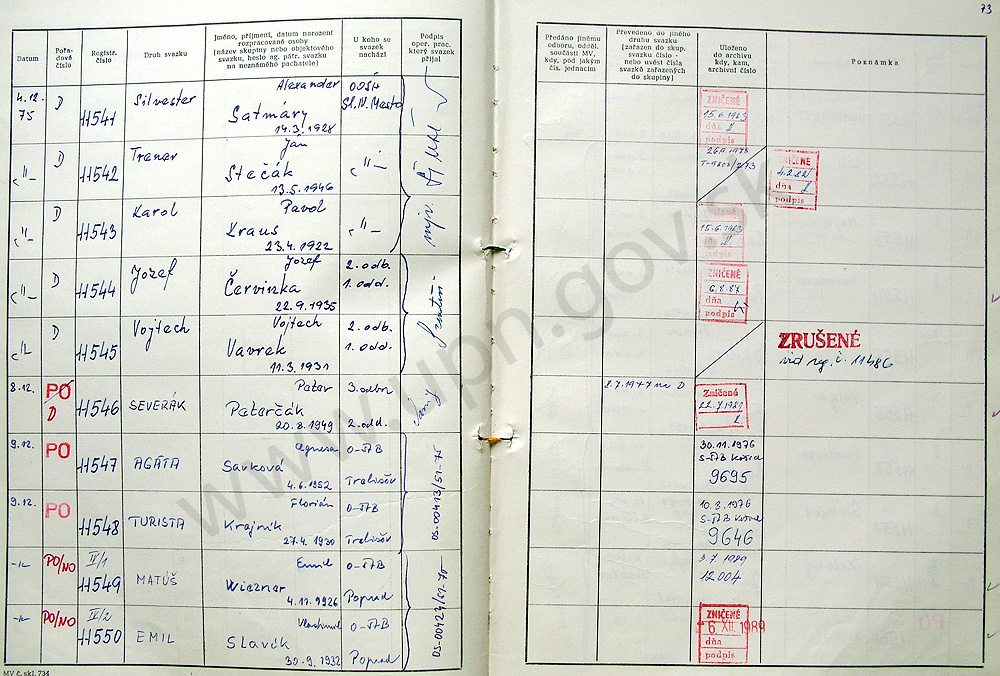 73
Datum
Pořadové číslo
Registr. číslo
Druh svazku
Jméno, příjmení, datum narození rozpracované osoby
(název skupiny nebo objektového svazku, heslo ag. pátr. svazku na neznámého pachatele)
U koho se svazek nachází
Podpis oper. prac. který svazek přijal
Předáno jinému odboru, odděl. součásti MV, kdy, pod jakým čís. jednacím
Převedeno do jiného druhu svazku (zařazen do skup. svazku číslo - nebo uvést čísla svazků zařazených do skupiny)
Uloženo do archivu kdy, kam, archivní číslo
Poznámka
4.12. 75 D 11541 Silvester Alexander OOŠH
Satmáry
14.3.1928
ZNIČENÉ
15.6.1983
dňa
podpis
-"- D 11542 Traner Ján -"-
Stečák
13.5.1946
ZNIČENÉ
dňa
podpis
-"- D 11543 Karol Pavol -"-
Kraus
23.4.1922
ZNIČENÉ
15.6.1983
dňa
podpis
-"- D 11544 Jozef Jozef 2. odb.
Červinka 1. odd.
22.9.1935
ZNIČENÉ
6.8.87
dňa
podpis
-"- D 11545 Vojtech Vojtech 2. odb.
Vavrek 1. odd.
11.3.1931
ZRUŠENÉ
vid reg. č. 11486
8.12. PO D 11546 SEVERÁK Peter 3. odbor
Peterčák
20.8.1949 2. odd.
Zničené
9.12. PO 11547 AGÁTA Agnesa O-ŠTB
Savková
4.6.1952 Trebišov
30.11.1976
S-ŠTB Košice
9695
9.12. PO 11548 TURISTA Florián O-ŠTB
Krajník
27.4.1930 Trebišov
10.8.1976
S-ŠTB Košice
9646
-"- PO/NO IV/1 11549 MATÚŠ Emil O-ŠTB
Wiezner
4.11.1926 Poprad
3.7.1989
12.004
-"- PO/NO IV/2 11550 EMIL Vlastimil O-ŠTB
Slavík
30.9.1932 Poprad
ZNIČENÉ
6 XII. 1989
dňa
podpis
MV č. skl. 734
www.upn.gov.sk